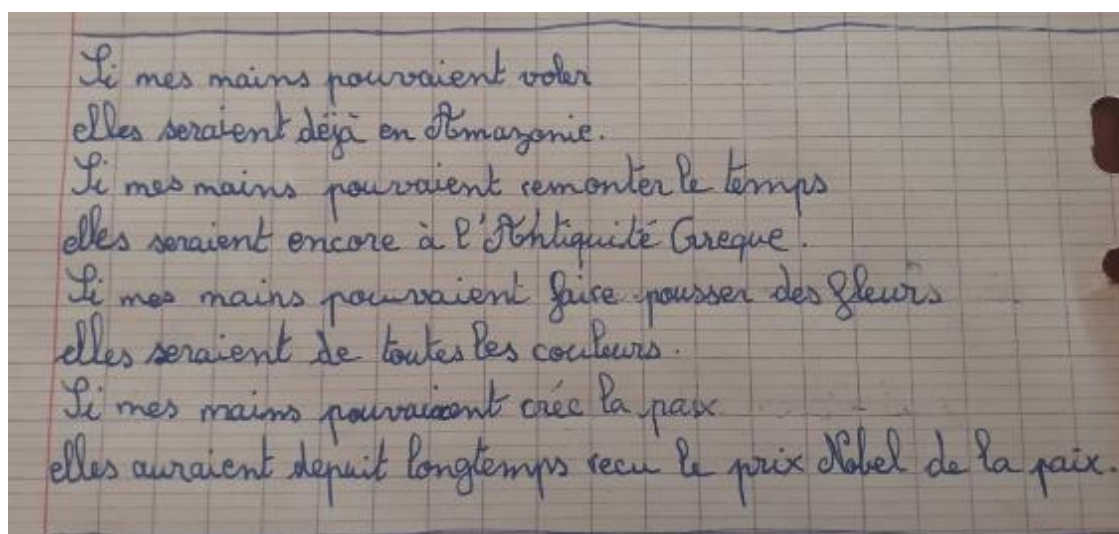 Si mes mains pouvaient voler
elles seraient déjà en Amazonie.
Si mes mains pouvaient remonter le temps
elles seraient encore à l'Antiquité Greque.
Si mes mains pouvaient faire pousser des fleurs
elles seraient de toutes les couleurs.
Si mes mains pouvaient crée la paix
elles auraient depuit longtemps recu le prix Nobel de la paix.